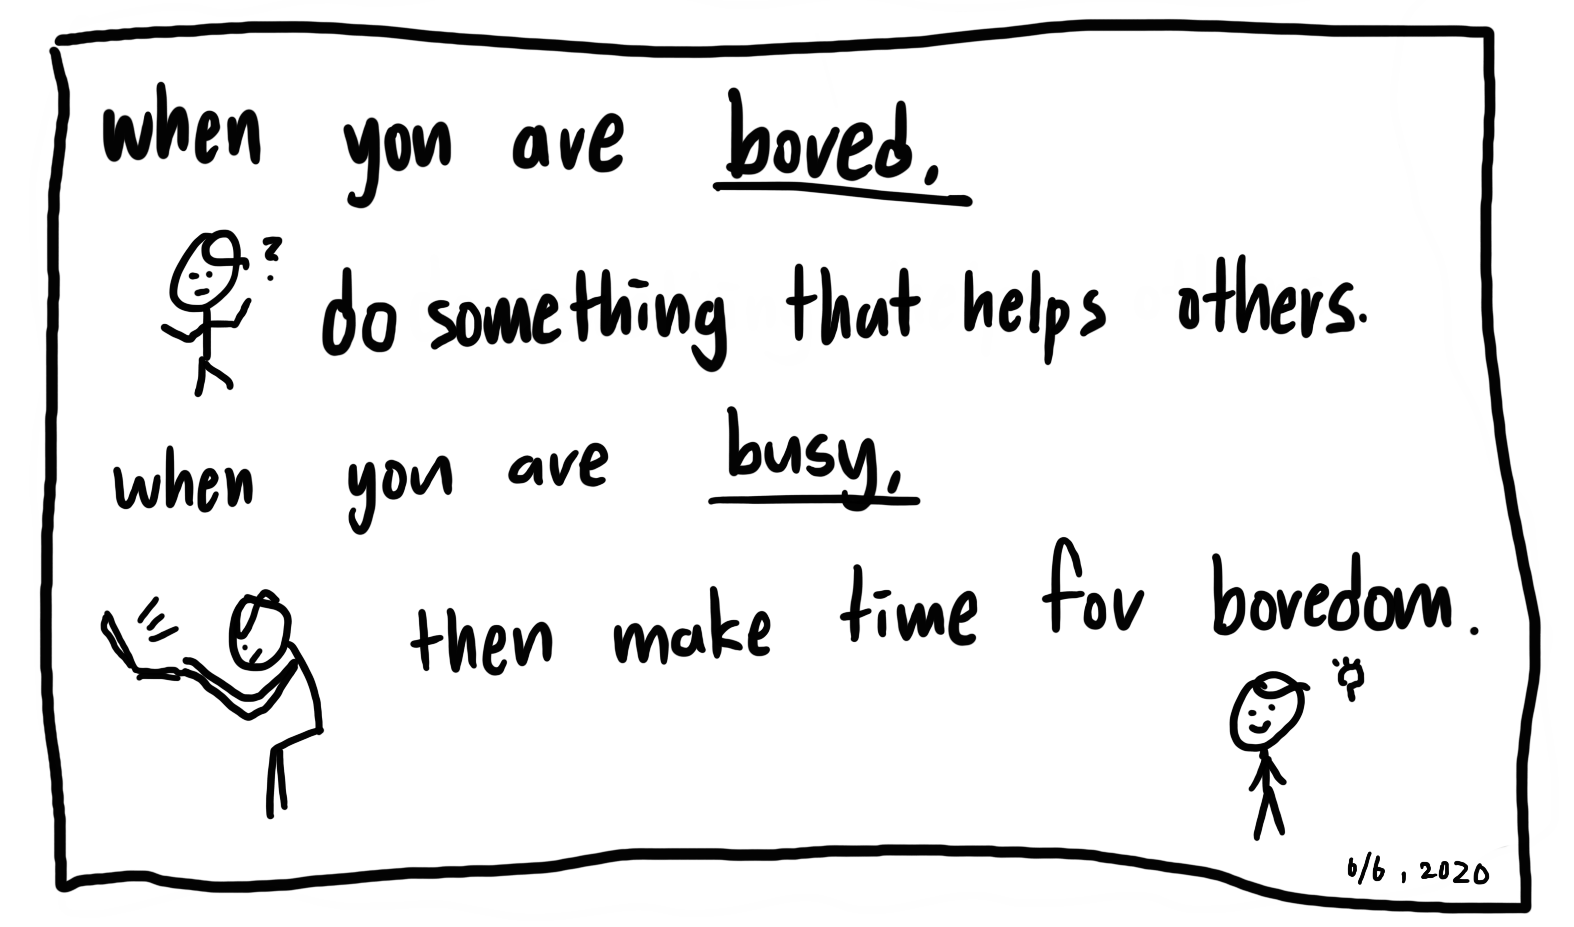 when you are bored.
?
do something that helps others.
when you are busy,
then make time for boredom.
6/6, 2020